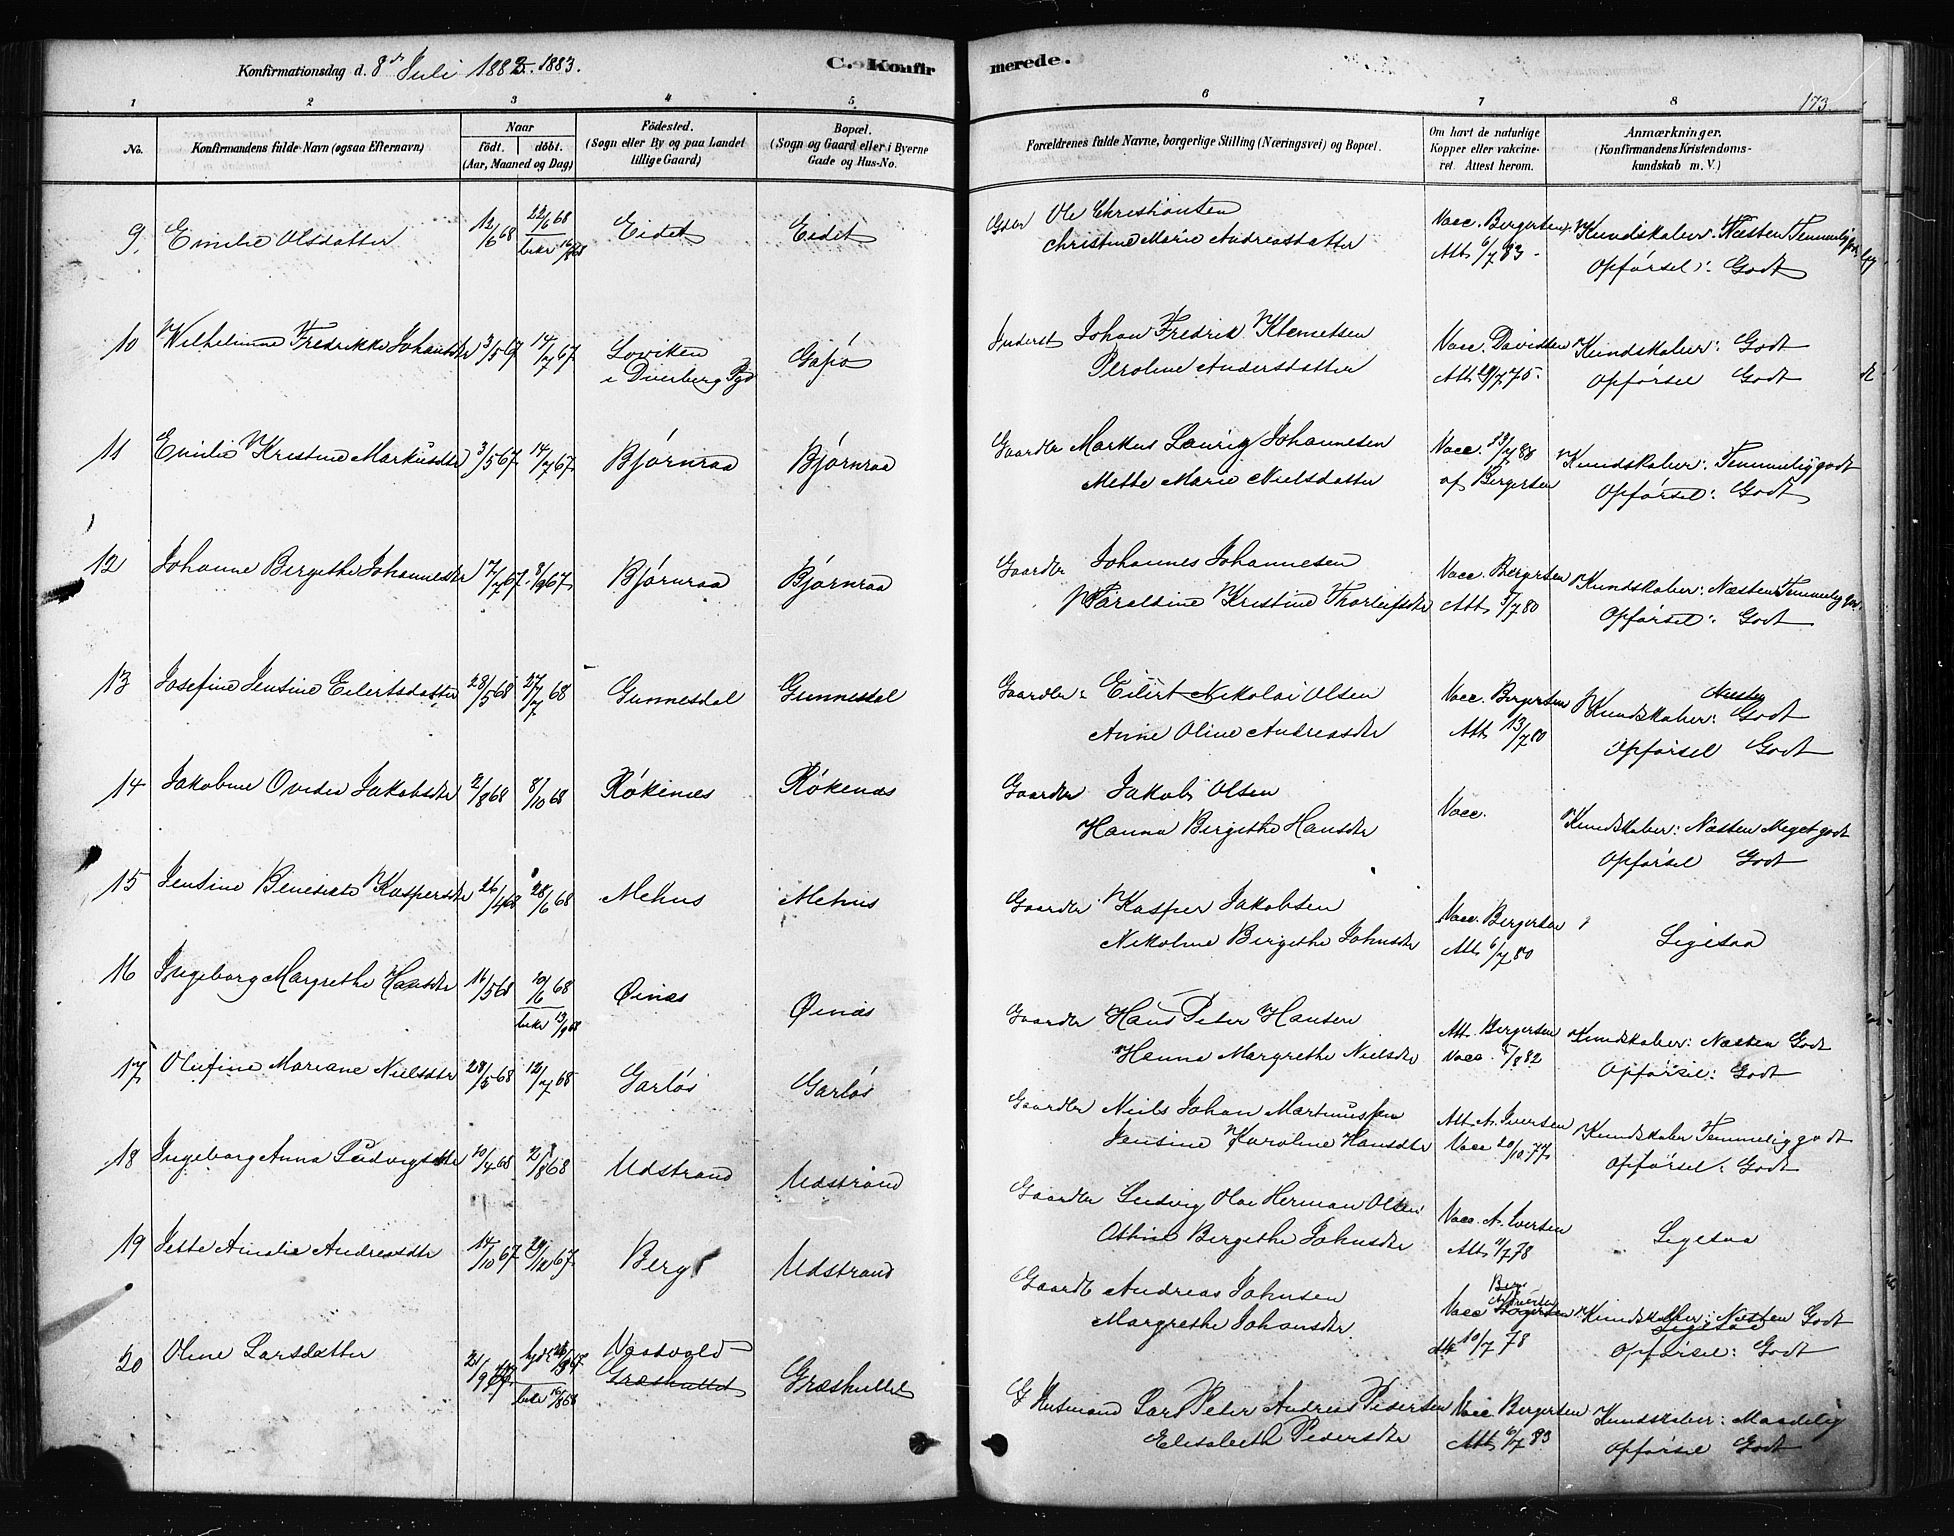 Konfirmationsdag d. 8de Juli 1883. 1883.
C. Konfirmerede.
173.
1 2 3 4 5 6 7 8
No.
Konfirmandens fulde Navn (ogsaa Efternavn)
Naar
født. døbt.
(Aar, Maaned og Dag)
Fødested.
(Sogn eller By og paa Landet
tillige Gaard)
Bopæl.
(Sogn og Gaard eller i Byerne
Gade og Hus-No.
Forældrenes fulde Navne, borgerlige Stilling (Næringsvei) og Bopæl.
Om havt de naturlige
Kopper eller vakcine-
ret. Attest herom.
Anmærkninger.
(Konfirmandens Kristendoms-
kundskab m. V.)
9. Emilie Olsdatter 12/6 68 22/6 68 Eidet Eidet Gdbr Ole Christiansen Vacc. Bergersen Kundskaber: Næsten Temmelig godt
bekr 16/8 68 Christine Marie Andreasdatter Att 6/7 83 Opførsel: Godt
10 Wilhelmine Fredrikke Johansdtr 3/5 67 14/7 67 Loviken Gapø Inderst Johan Fredrik Klemetsen Vacc. Davidsen Kundskaber: Godt
i Dverberg Pgd Peroline Andersdatter Att 29/7 75 Opførsel Godt
11 Emilie Kristine Markusdtr 3/5 67 14/7 67 Bjørnraa Bjørnraa Gaardbr Markus Laurig Johannesen Vacc. 13/7 80 Kundskaber: Temmelig godt
Mette Marie Nielsdatter af Bergersen Opførsel: Godt
12 Johanne Bergethe Johannesdtr 17/7 67 8/9 67 Bjørnraa Bjørnraa Gaardbr Johannes Johannesen Vacc. Bergersen Kundskaber: Næsten Temmelig godt
Haraldine Kristine Thorleifsdtr Att /7 80 Opførsel: Godt
13 Josefine Jensine Eilertsdatter 28/5 68 27/7 68 Gunnesdal Gunnesdal Gaardbr: Eilert Nikolai Olsen Vacc. Bergersen Kundskaber: Næsten Godt
Anne Oline Andreasdtr Att 13/7 80 Opførsel Godt
14 Jakobine Ovidia Jakobsdtr 2/8 68 8/10 68 Røkenæs Røkenæs Gaardbr Jakob Olsen Vacc. Kundskaber: Næsten Meget godt
Hanna Bergethe Hansdtr Opførsel Godt
15 Jensine Benedicte Kaspersdtr 26/4 68 28/6 68 Mehus Mehus Gaardbr Kasper Jakobsen Vacc. Bergersen Ligesaa
Nikoline Bergethe Johnsdtr Att 6/7 80
16 Ingeborg Margrethe Hansdtr 16/5 68 10/6 68 Øinæs Øinæs Gaardbr Hans Peter Hansen Att. Bergersen Kundskaber: Næsten Godt
bekr 13/9 68 Hanna Margrethe Nielsdtr Vacc. 5/8 82 Opførsel: Godt
17 Olufine Mariane Nielsdtr 28/5 68 12/7 68 Garløs Garløs Gaardbr Niels Johan Martinussen Att A. Iversen Kundskaber Temmelig godt
Jensine Karoline Hansdtr Vacc 20/10 77 Opførsel: Godt
18 Ingeborg Anna Ludvigsdtr 10/4 68 2/8 68 Udstrand Udstrand Gaardbr Ludvig Olai Herman Olsen Vacc. A. Iversen Ligesaa
Athine Bergethe Johnsdtr Att 11/7 78
19 Jette Amalie Andreasdtr 14/10 67 29/12 67 Berg Udstrand Gaardbr Andreas Johnsen Vacc Bergersen Kundskaber: Næsten Godt
Margrethe Johansdtr Att 10/7 78 Ligesaa Opførsel: Godt
20 Oline Larsdatter 21/9 67 bekr 16/8 68 Vaatvold Græshullet Græshullet Husmand Lars Peter Andreas Pedersen Vacc. Bergersen Kundskaber: Maadelig
Elisabeth Pedersdtr Att 6/7 83 Opførsel Godt